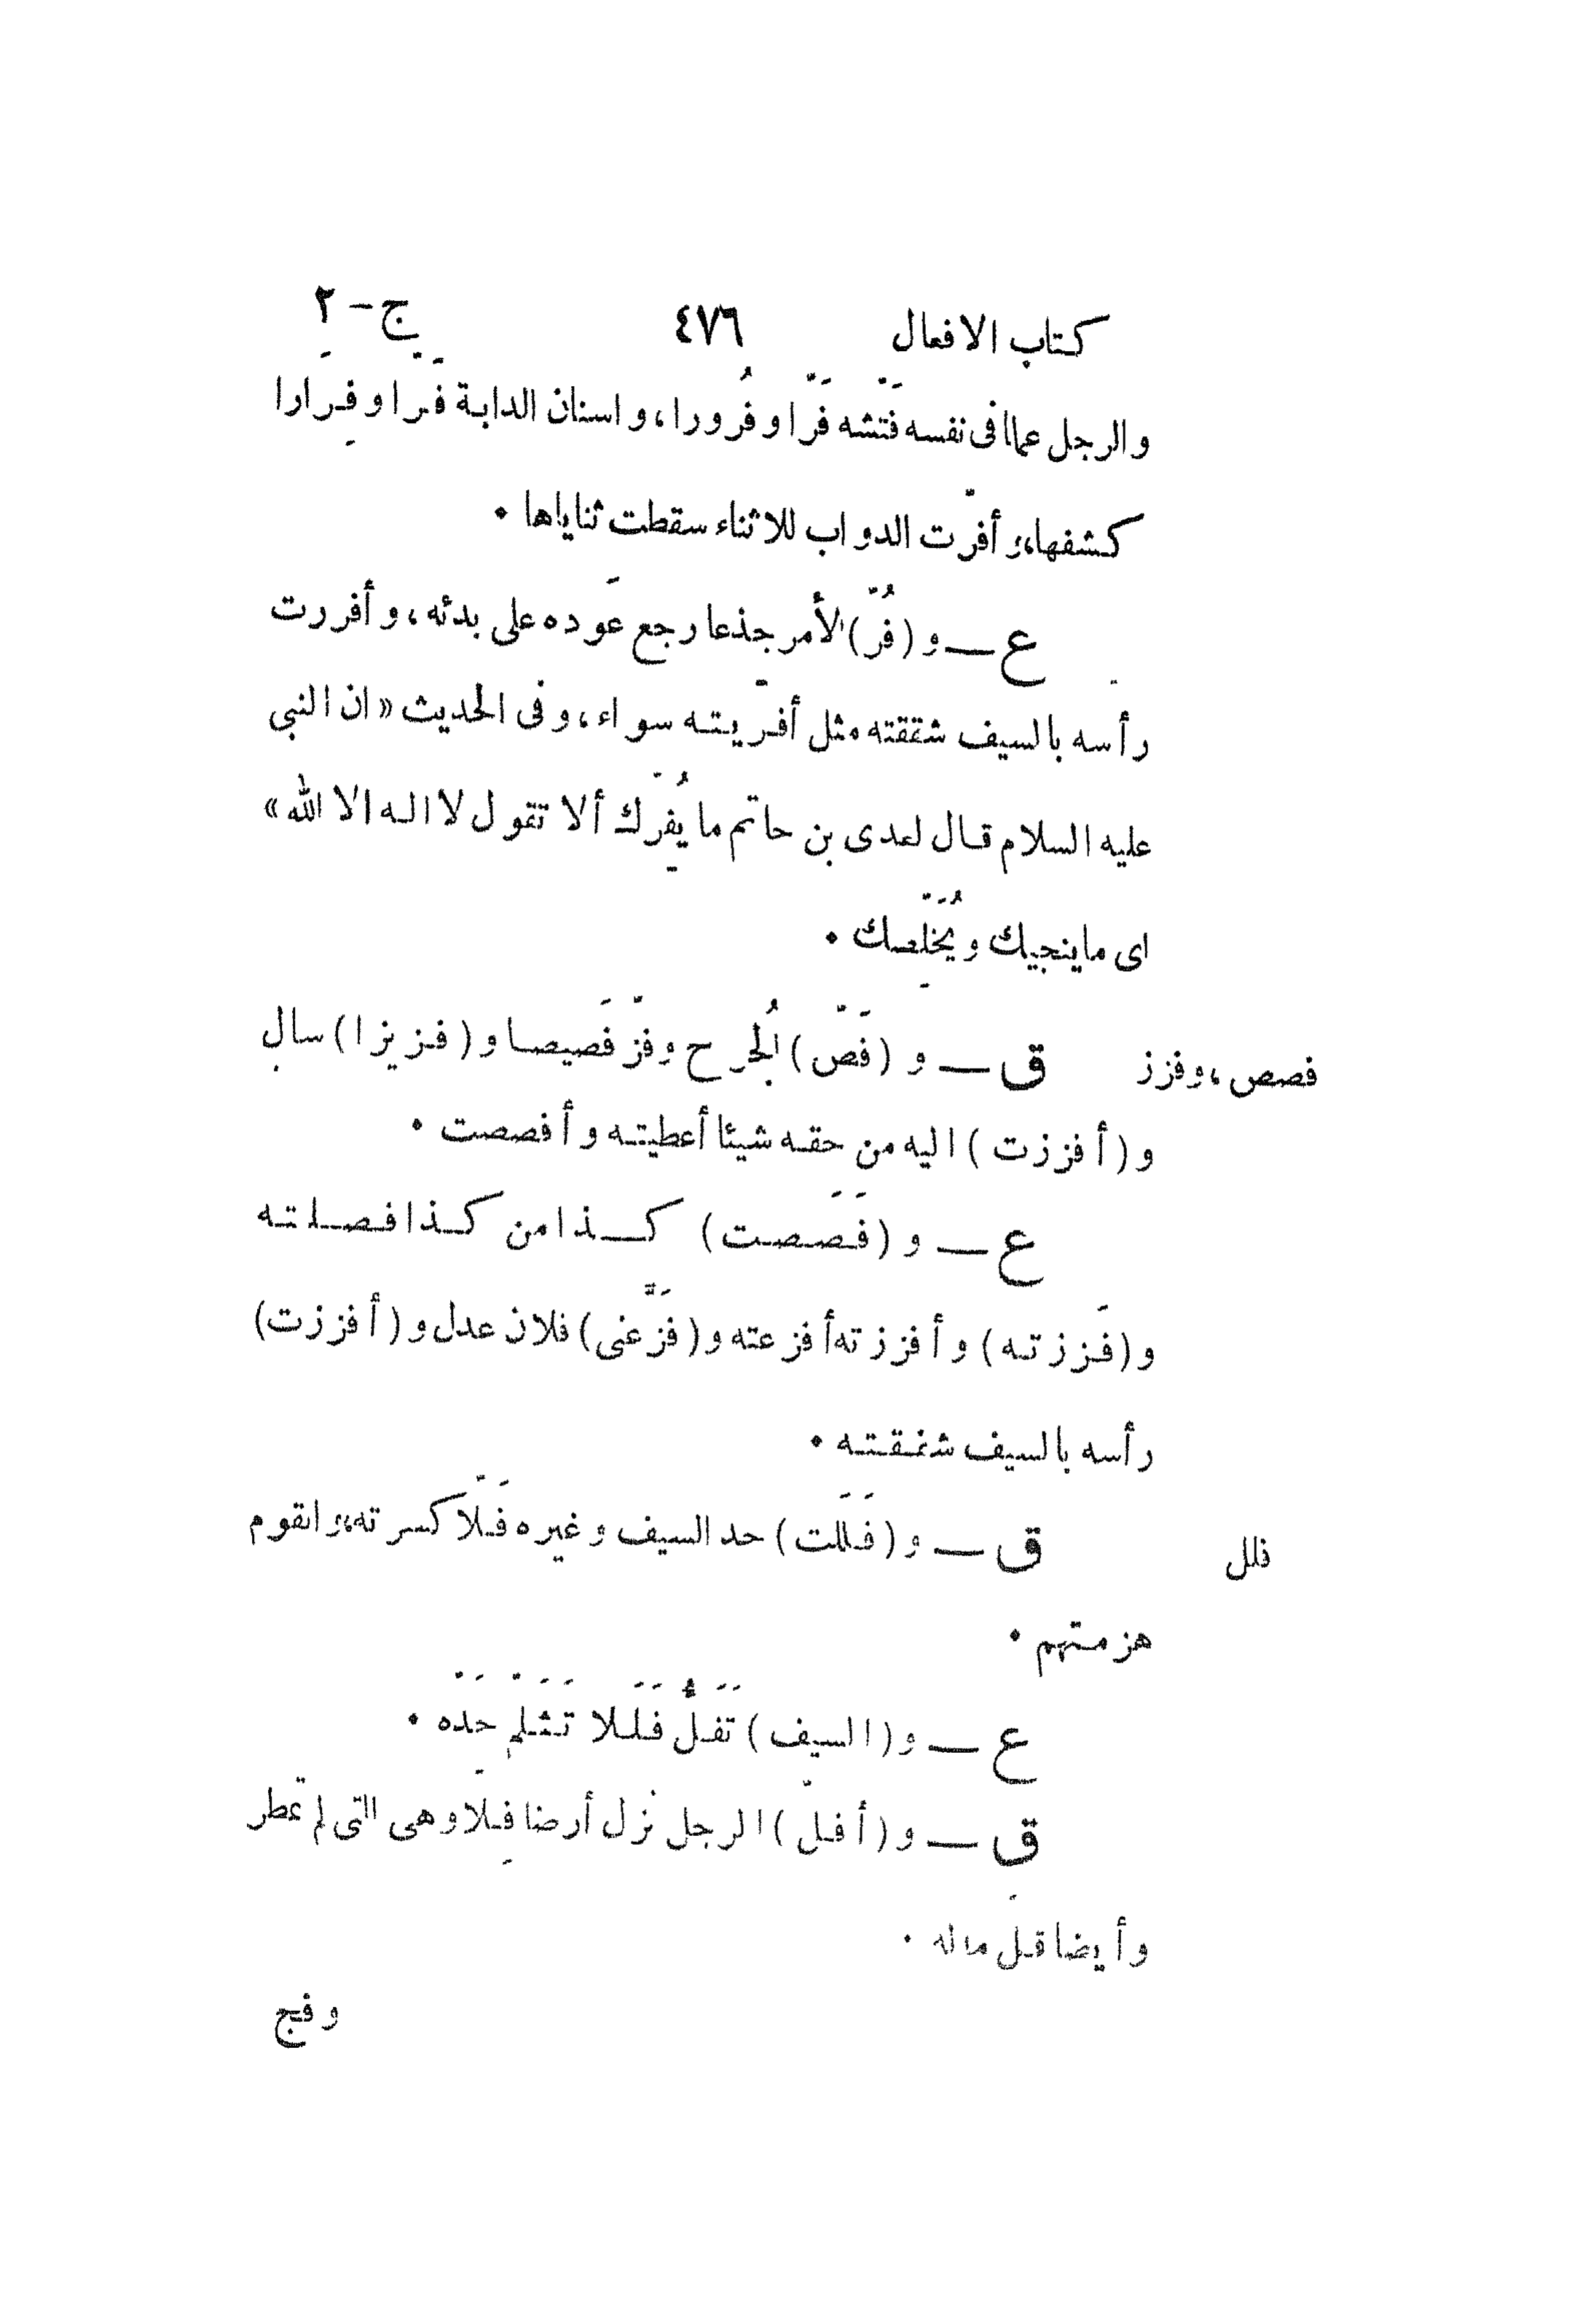 كتاب الافعال ٤٧٦ ج - ٢
والرجل عما فى نفسه فتّشه فَرّا وفُرورا، واسنان الدابة فَرّا وفِرارا
كشفها، و أفرّت الدواب للاثناء سقطت ثناياها ٠
ع ـــ و (فُرّ) الأمر جذعا رجع عَوده على بدئه، و أفررت
رأسه بالسيف شققته مثل أفـرّيتـه سواء، وفى الحديث « ان النبى
عليه السلام قـال لعدى بن حاتم ما يُفِرّك ألا تقول لا الـه الا الله »
اى ماينجيك ويُخَلِّصك ٠
فصص، وفزز
ق ـــ و (فَصّ) الجُرح وفزّ فَصيصـا و (فـزيزا) سال
و (أفززت) اليه من حقـه شيئا أعطيتـه وأفصصت ٠
ع ـــ و (فَصَصت) كـــذا من كــذا فـصــلتـه
و (فَـززتـه) و أفززته أفزعته و (فَزَّعنى) فلان عدل و (أفززت)
رأسه بالسيف شققـتـه ٠
فلل
ق ـــ و (فَـلَلت) حد السيف وغيره فَـلّا كسرته، و القوم
هزمـتهم ٠
ع ـــ و (السيف) تَفَـلُّ فَـلَـلا تَـثَـلّم حَدّه ٠
ق ـــ و (أفـلّ) الرجل نزل أرضا فِـلّا وهى التى لم تمطر
وأيضا قـلّ ماله ٠
وفج